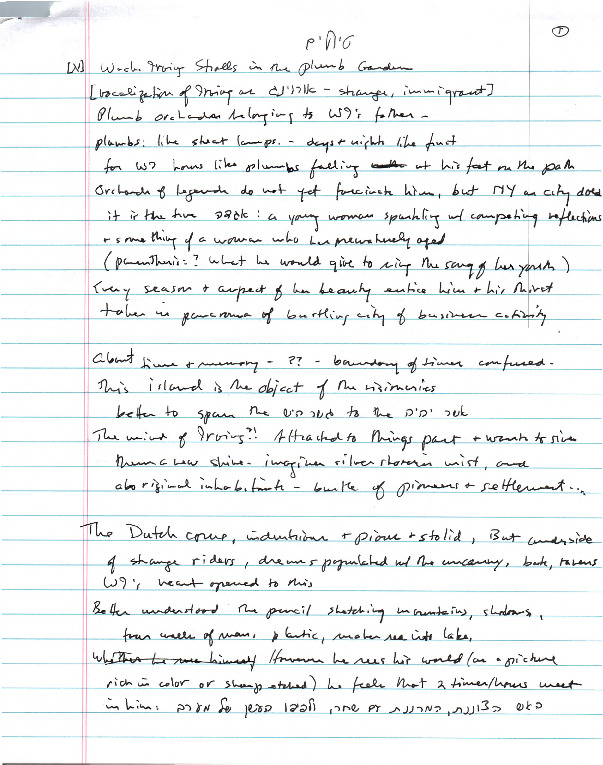 [V] Wash. Irving Strolls in the Plumb Garden
[vocalization of Irving as - strange, immigrant]
Plumb orchards belonging to WI's father -
plumbs: like street lamps. - days + nights like fruit
for WI hours like plumbs falling at his feet on the path
Orchards of legends do not yet fascinate him, but NY as city does
it is the time : a young woman sparkling w/ competing reflections
+ something of a woman who has prematurely aged
(parenthesis: ? what he would give to sing the song of her youth)
Every season + aspect of her beauty entice him + his thirst
takes in panorama of bustling city of business activity
About time + memory - ?? - boundary of times confused -
This island is the object of the visionaries
better to span the to the
The mind of Irving?! Attracted to things past + wants to give
them a new shine - imagines silver shores in mist, and
aboriginal inhabitants - bustle of pioneers + settlement...
The Dutch come, industrious + pious + stolid, But underside
of strange riders, dreams populated w/ the uncanny, bats, ravens
WI's heart opened to this
Better understood the pencil sketching mountains, shadows,
four walls of man, plastic, makes sea into lake,
Whether he sees himself However he sees his world (as a picture
rich in color or sharp etched) he feels that 2 times/hours meet
in him: